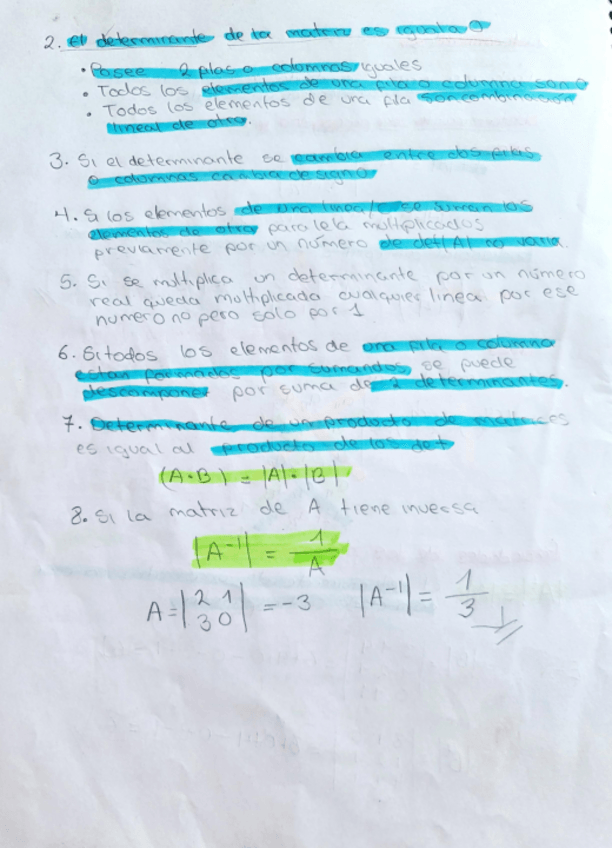 2. El determinante de la matriz es igual a 0
• Posee 2 filas o columnas iguales
• Todos los elementos de una fila o columna son 0
• Todos los elementos de una fila son combinacion
lineal de otra.
3. Si el determinante se cambia entre dos filas
o columnas cambia de signo
4. Si los elementos de una linea/c se suman los
elementos de otra paralela multiplicados
previamente por un número de det(A) no varia.
5. Si se multiplica un determinante por un número
real queda multiplicada cualquier linea por ese
numero no pero solo por 1
6. Si todos los elementos de una fila o columna
estan formados por sumandos, se puede
descomponer por suma de 2 determinantes.
7. Determinante de un producto de matrices
es igual al producto de los det
(A•B) = |A|•|B|
8. Si la matriz de A tiene inversa
|A⁻¹| = 1/A
A = |2 1
3 0| = -3 |A⁻¹| = 1/3